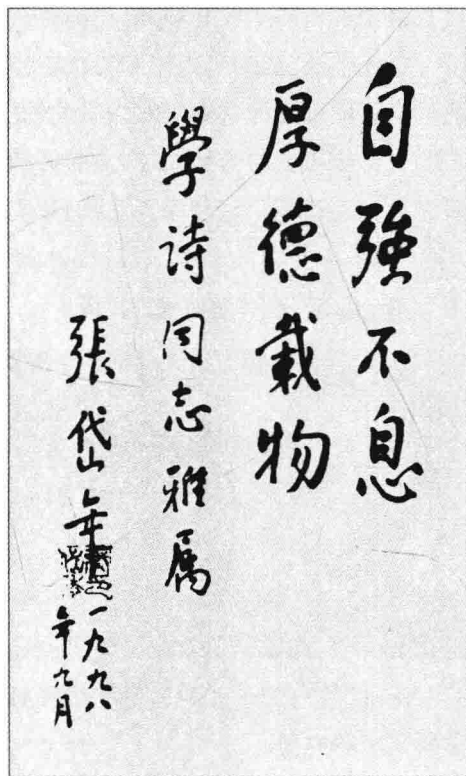 自強不息
厚德載物
學詩同志雅属
張岱年
一九九八
年九月